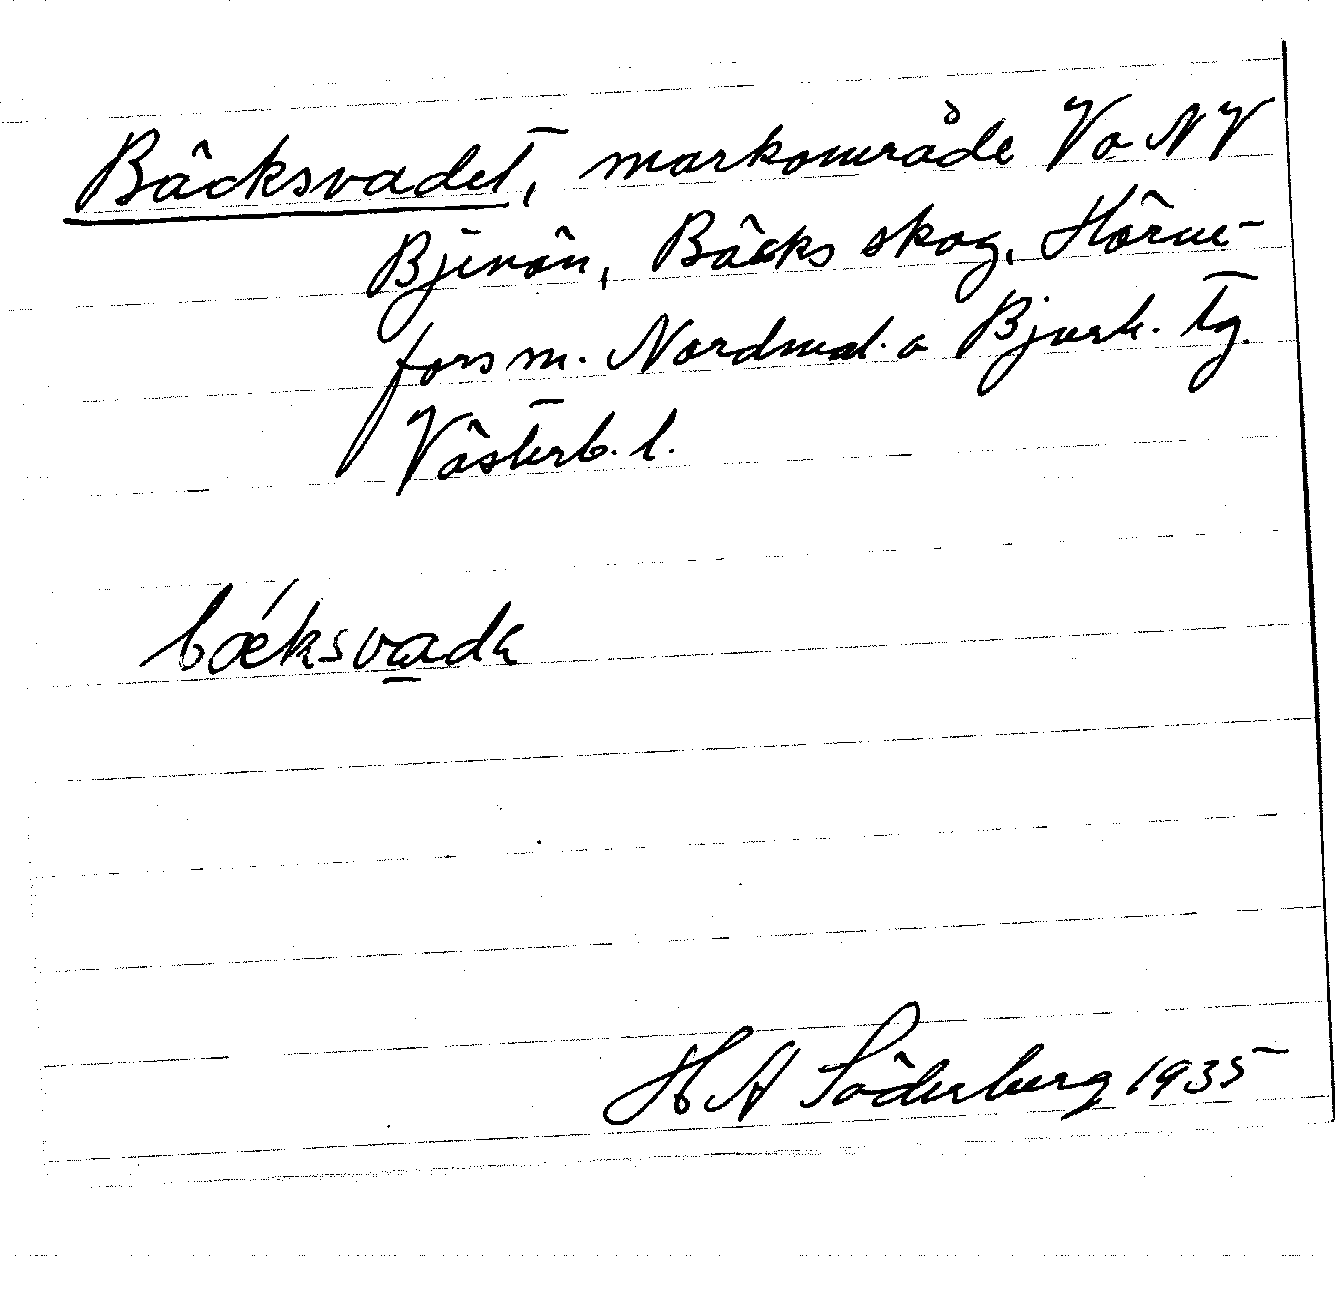 Bäcksvadet, markområde Va NV
Bjenön, Bäcks skog, Hörne-
fors m. Nordmal. o Bjurh. tg.
Västerb. l.
bǽksvada
H A Söderberg 1935